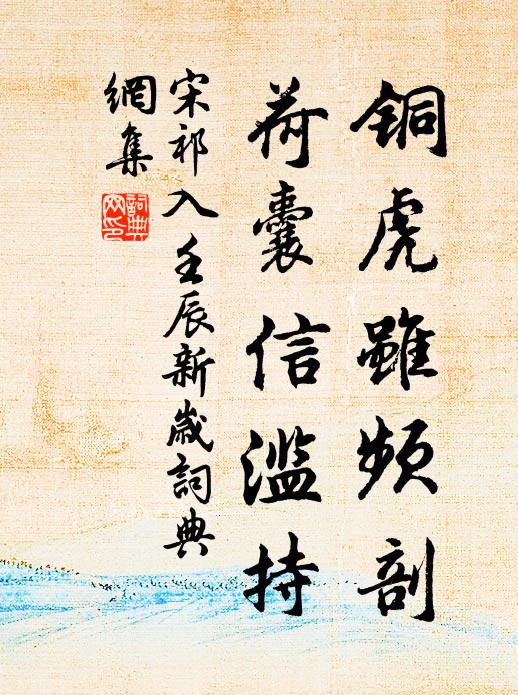 銅虎雖頻剖
荷囊信濫持
宋祁入壬辰新歲詞典
網集
詞典
网印